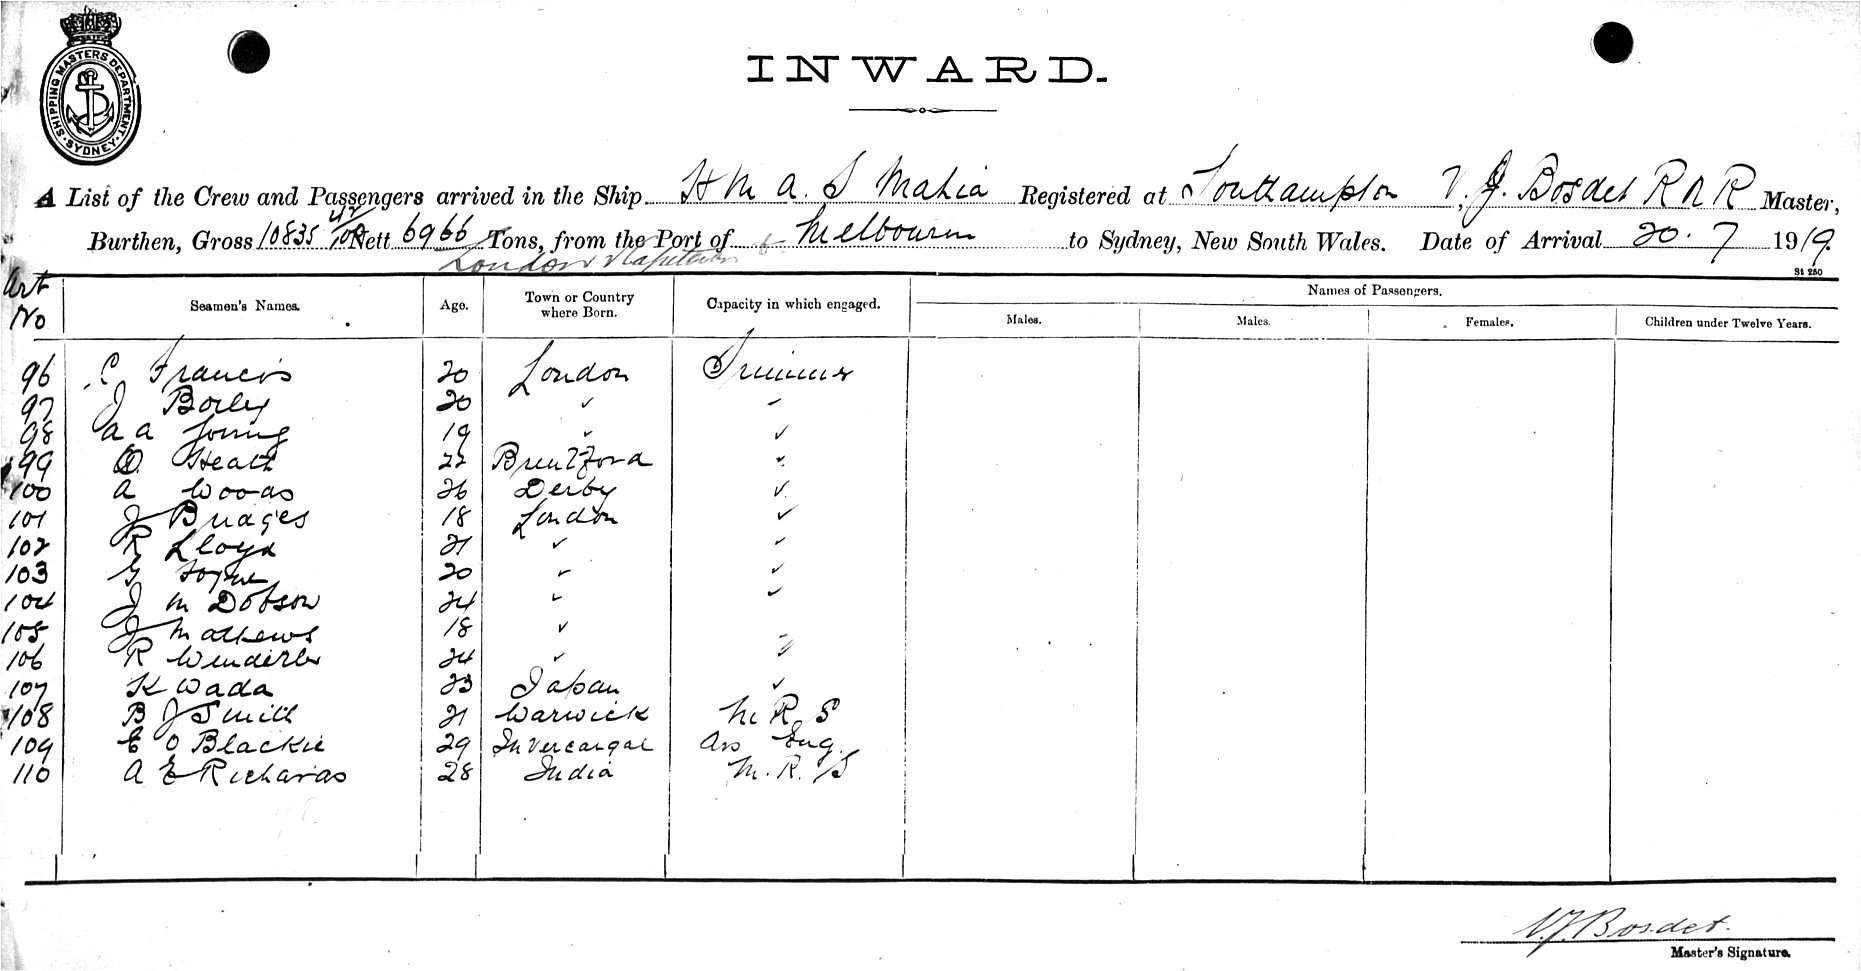 SHIPPING MASTERS DEPARTMENT · SYDNEY ·
INWARD.
A List of the Crew and Passengers arrived in the Ship H M A. S Mahia Registered at Southampton V. J. Bosdet R N R Master,
Burthen, Gross 10835 42/100 Nett 6966 Tons, from the Port of Melbourn to Sydney, New South Wales. Date of Arrival 20.7 1919.
London
St 250
Art No Seamen's Names. Age. Town or Country where Born. Capacity in which engaged. Names of Passengers.
Males. Males. Females. Children under Twelve Years.
96 C Francis 20 London Trimmer
97 J Borley 20 " "
98 A A Young 19 " "
99 O. Heath 22 Brentford "
100 A Woods 26 Derby "
101 J Bridges 18 London "
102 R Lloyd 21 " "
103 G 20 " "
104 J M Dobson 24 " "
105 J Mathews 18 "
106 R 24 " "
107 K Wada 23 Japan "
108 B J Smith 21 Warwick M R S
109 E O Blackie 29 Invercargal Ass Eng.
110 A E Richards 28 India M. R. S
V. J. Bosdet.
Master's Signature.